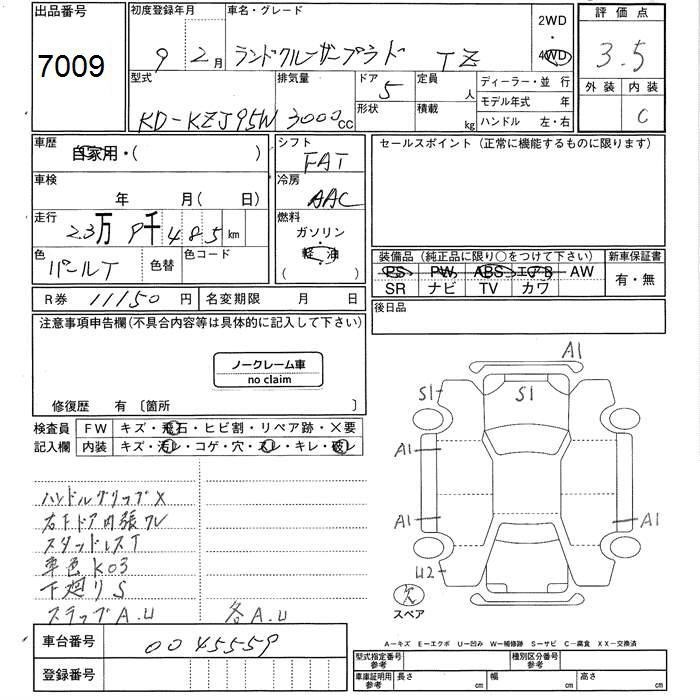 出品番号
7009
初度登録年月
9 2月
車名・グレード
ランドクルーザープラド TZ
2WD
・
4WD
評価点
3.5
外装 内装
C
型式
KD-KZJ95W
排気量
3000cc
ドア
5
形状
定員
人
積載
kg
ディーラー・並 行
モデル年式 年
ハンドル 左・右
車歴
自家用・( )
車検
年 月( 日)
走行
23万9千485km
色
パールT
色替
色コード
シフト
FAT
冷房
AAC
燃料
ガソリン
軽・油
( )
セールスポイント（正常に機能するものに限ります）
装備品（純正品に限り○をつけて下さい）
PS PW ABS エアB AW
SR ナビ TV カワ
新車保証書
有・無
R券 11150円
名変期限 月 日
後日品
注意事項申告欄(不具合内容等は具体的に記入して下さい)
ノークレーム車
no claim
修復歴 有〔箇所 〕
検査員
記入欄
FW キズ・飛石・ヒビ割・リペア跡・×要
内装 キズ・汚レ・コゲ・穴・スレ・キレ・破レ
ハンドルグリップ×
右下ドア内張ワレ
スタッドレスT
車色K03
下廻りS
スラップA.U 各A.U
A1
S1
S1
A1
A1
A1
U2
欠
スペア
A－キズ E－エクボ U－凹み W－補修跡 S－サビ C－腐食 XX－交換済
車台番号 0045559
登録番号
型式指定番号
参考
種別区分番号
参考
車庫証明用
参考
長さ cm
幅 cm
高さ cm